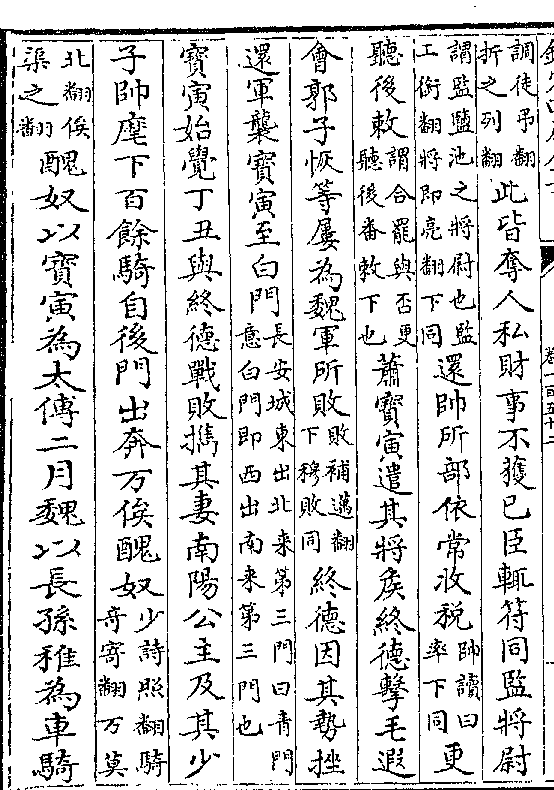 調徒弔翻折之列翻此皆奪人私財事不獲已臣輒符同監將尉
謂監鹽池之將尉也監工銜翻將即亮翻下同還帥所部依常收稅帥讀曰率下同更
聽後敕謂合罷與否更聽後番敕下也蕭寶寅遣其將侯終德擊毛遐
會郭子恢等屢為魏軍所敗敗補邁翻下穆敗同終德因其勢挫
還軍襲寶寅至白門長安城東出北来第三門曰青門意白門即西出南来第三門也
寶寅始覺丁丑與終德戰敗擕其妻南陽公主及其少
子帥麾下百餘騎自後門出奔万俟醜奴少詩照翻騎奇寄翻万莫
北翻俟渠之翻醜奴以寶寅為太傅二月魏以長孫稚為車騎